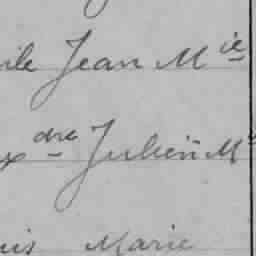 ile Jean Mie
xdre Julien M
uis Marie